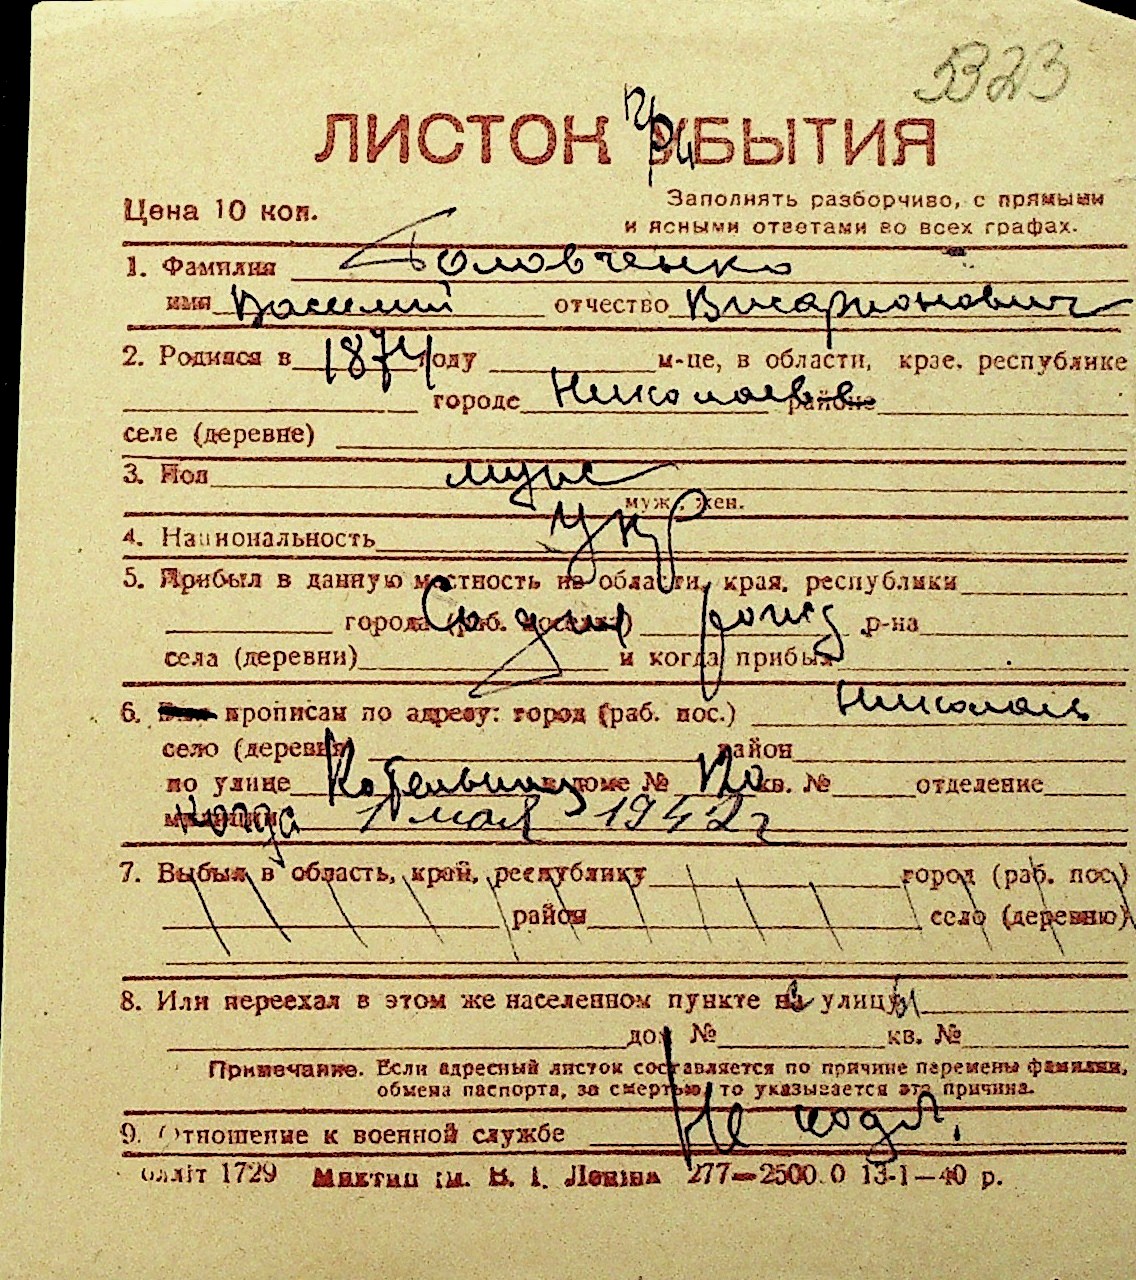 5323
ЛИСТОК ПРИБЫТИЯ
Цена 10 коп.
Заполнять разборчиво, с прямыми
и ясными ответами во всех графах.
1. Фамилия Головченко
имя Василий отчество Висарионович
2. Родился в 1874 году м-це, в области, крае, республике
городе Николаеве районе
селе (деревне)
3. Пол муж
муж., жен.
4. Национальность Укр
5. Прибыл в данную местность из области, края, республики
города (раб. поселка) Со дня рожд р-на
села (деревни) и когда прибыл
6. прописан по адресу: город (раб. пос.) Николаев
село (деревня) район
по улице доме № кв. № отделение
когда 1 мая 1942 г
7. Выбыл в область, край, республику город (раб. пос.)
район село (деревню)
8. Или переехал в этом же населенном пункте с улицы
дом № кв. №
Примечание. Если адресный листок составляется по причине перемены фамилии,
обмена паспорта, за смертью, то указывается эта причина.
9. Отношение к военной службе Не
1729 ім. В. І. Леніна 277—2500.0 13-1—40 р.